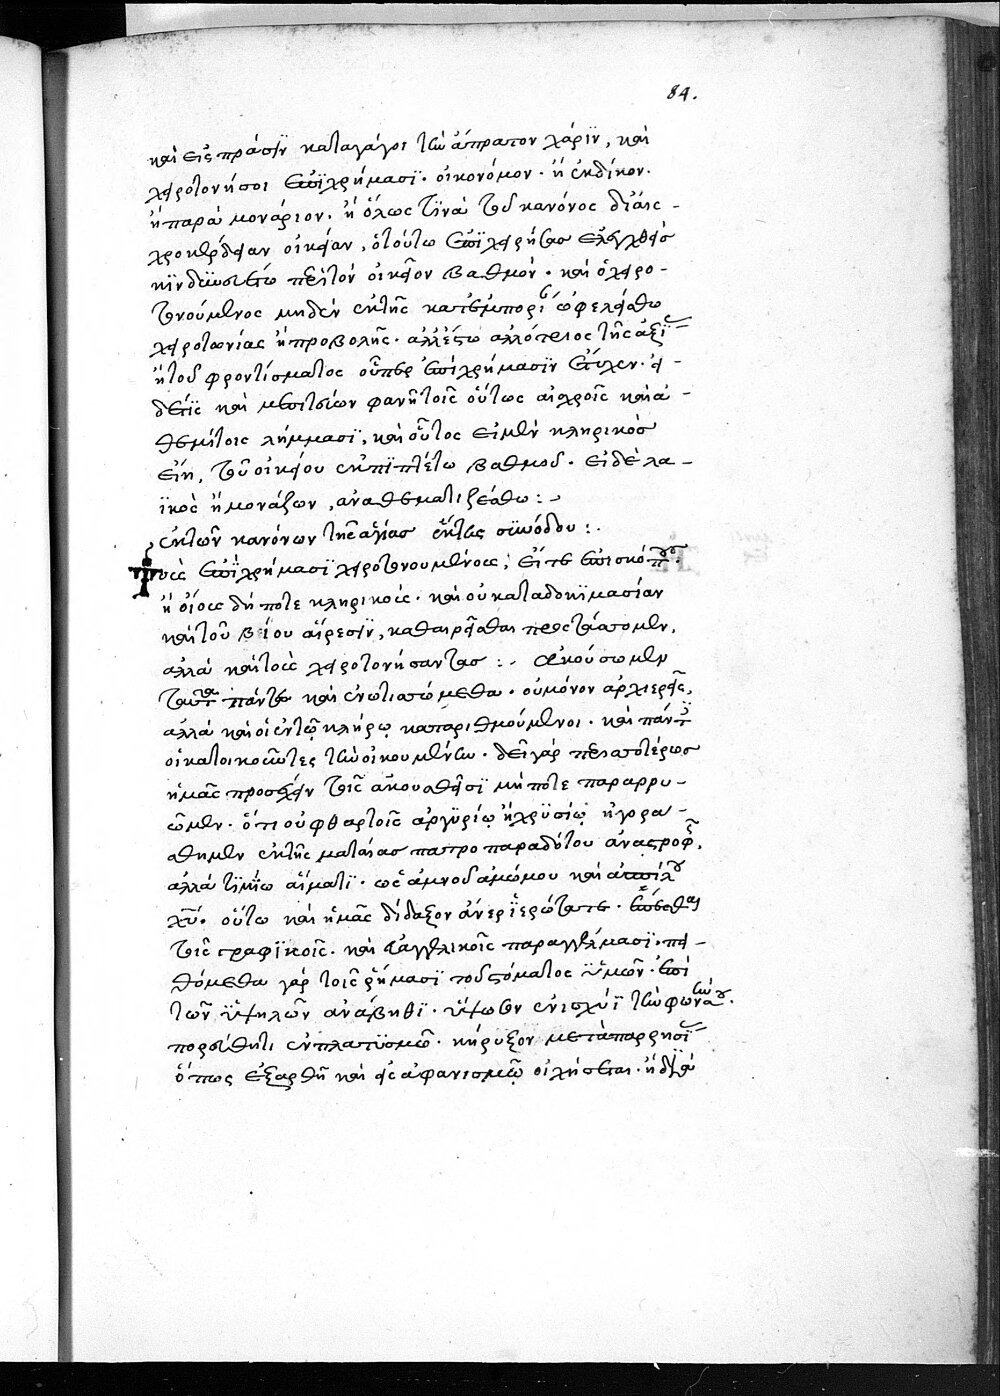 84.
καὶ εἰς πρᾶσϊν καταγάγοι τὴν ἄπρατον χάρϊν, καὶ
χειροτονήσοι ἐπῒ χρήμασϊ· οἰκονόμον· ἢ ἔκδικον·
ἢ παρα μονάριον· ἢ ὅλως τϊνὰ τοῦ κανόνος δι' αἰς-
χροκέρδειαν οἰκείαν, ὁ τοῦτο ἐπϊχειρήσας ἐλεγχθεὶς
κϊνδϋνευέτω περὶ τὸν οἰκεῖον βαθμόν· καὶ ὁ χειρο-
τονούμενος μηδὲν ἐκ τῆς κατ' ἐμπορί ὠφελείσθω
χειροτονίας ἢ προβολῆς· ἀλλ' ἔστω ἀλλότριος τῆς ἀξί
ἢ τοῦ φροντίσματος οὗπερ ἐπὶ χρήμασϊν ἔτυχεν· εἰ
δέ τϊς καὶ μεσιτεύων φανῆ τοῖς οὕτως αἰσχροῖς καὶ ἀ-
θεμίτοις λήμμασϊ, καὶ οὗτος εἰ μὲν κληρικὸς
εἴη, τοῦ οἰκείου ἐκπϊπτέτω βαθμοῦ· εἰ δὲ λα-
ϊκὸς ἢ μονάζων, ἀναθεματιζέσθω:
ἐκ τῶν κανόνων τῆς ἁγίας ἕκτης σϋνόδου:.
Τοὺς ἐπῒ χρήμασϊ χειροτονουμένους, εἴτε ἐπισκόπους·
ἢ οἵους δή ποτε κληρικούς· καὶ οὐ κατα δοκϊμασίαν
καὶ τοῦ βίου αἵρεσϊν, καθαιρεῖσθαι προς τάσσομεν,
ἀλλὰ καὶ τοὺς χειροτονήσαντας:· Ακούσωμεν
ταῦτα πάντες καὶ ἐνωτισώμεθα· οὐ μόνον ἀρχιερεῖς,
ἀλλὰ καὶ οἱ ἐν τῷ κλήρῳ καταριθμούμενοι· καὶ πάντ
οἱ κατοικοῦντες τὴν οἰκουμένην· δεῖ γὰρ περισσοτέρως
ἡμᾶς προσέχειν τοῖς ἀκουσθεῖσϊ μή ποτε παραρρυ-
ῶμεν· ὅτι οὐ φθαρτοῖς ἀργϋρίῳ ἢ χρϋσίῳ ἠγορά-
σθημεν ἐκ τῆς ματαίας πατρο παραδότου ἀναστροφῆς,
ἀλλὰ τϊμίω αἵματϊ· ὡς ἀμνοῦ ἀμώμου καὶ ἀσπίλου
χϋ· οὕτω καὶ ἡμᾶς δίδαξον ἄνερ ἱερώτατε· ἕπεσθαι
τοῖς γραφϊκοῖς· καὶ εὐαγγελικοῖς παραγγέλμασϊ· πει-
θόμεθα γὰρ τοῖς ῥήμασϊ τοῦ στόματος ὑμῶν· ἐπὶ
τῶν ὑψηλῶν ἀνάβηθϊ· ὕψωσον ἐν ἰσχύϊ τὴν φωνήν σου·
πορεύθητι ἐν πλατϋσμῶ· κήρυξον μετὰ παρρησί
ὅπως ἐξαρθῆ καὶ εἰς ἀφανισμῷ οἰχήσεται· ἡ διὰ